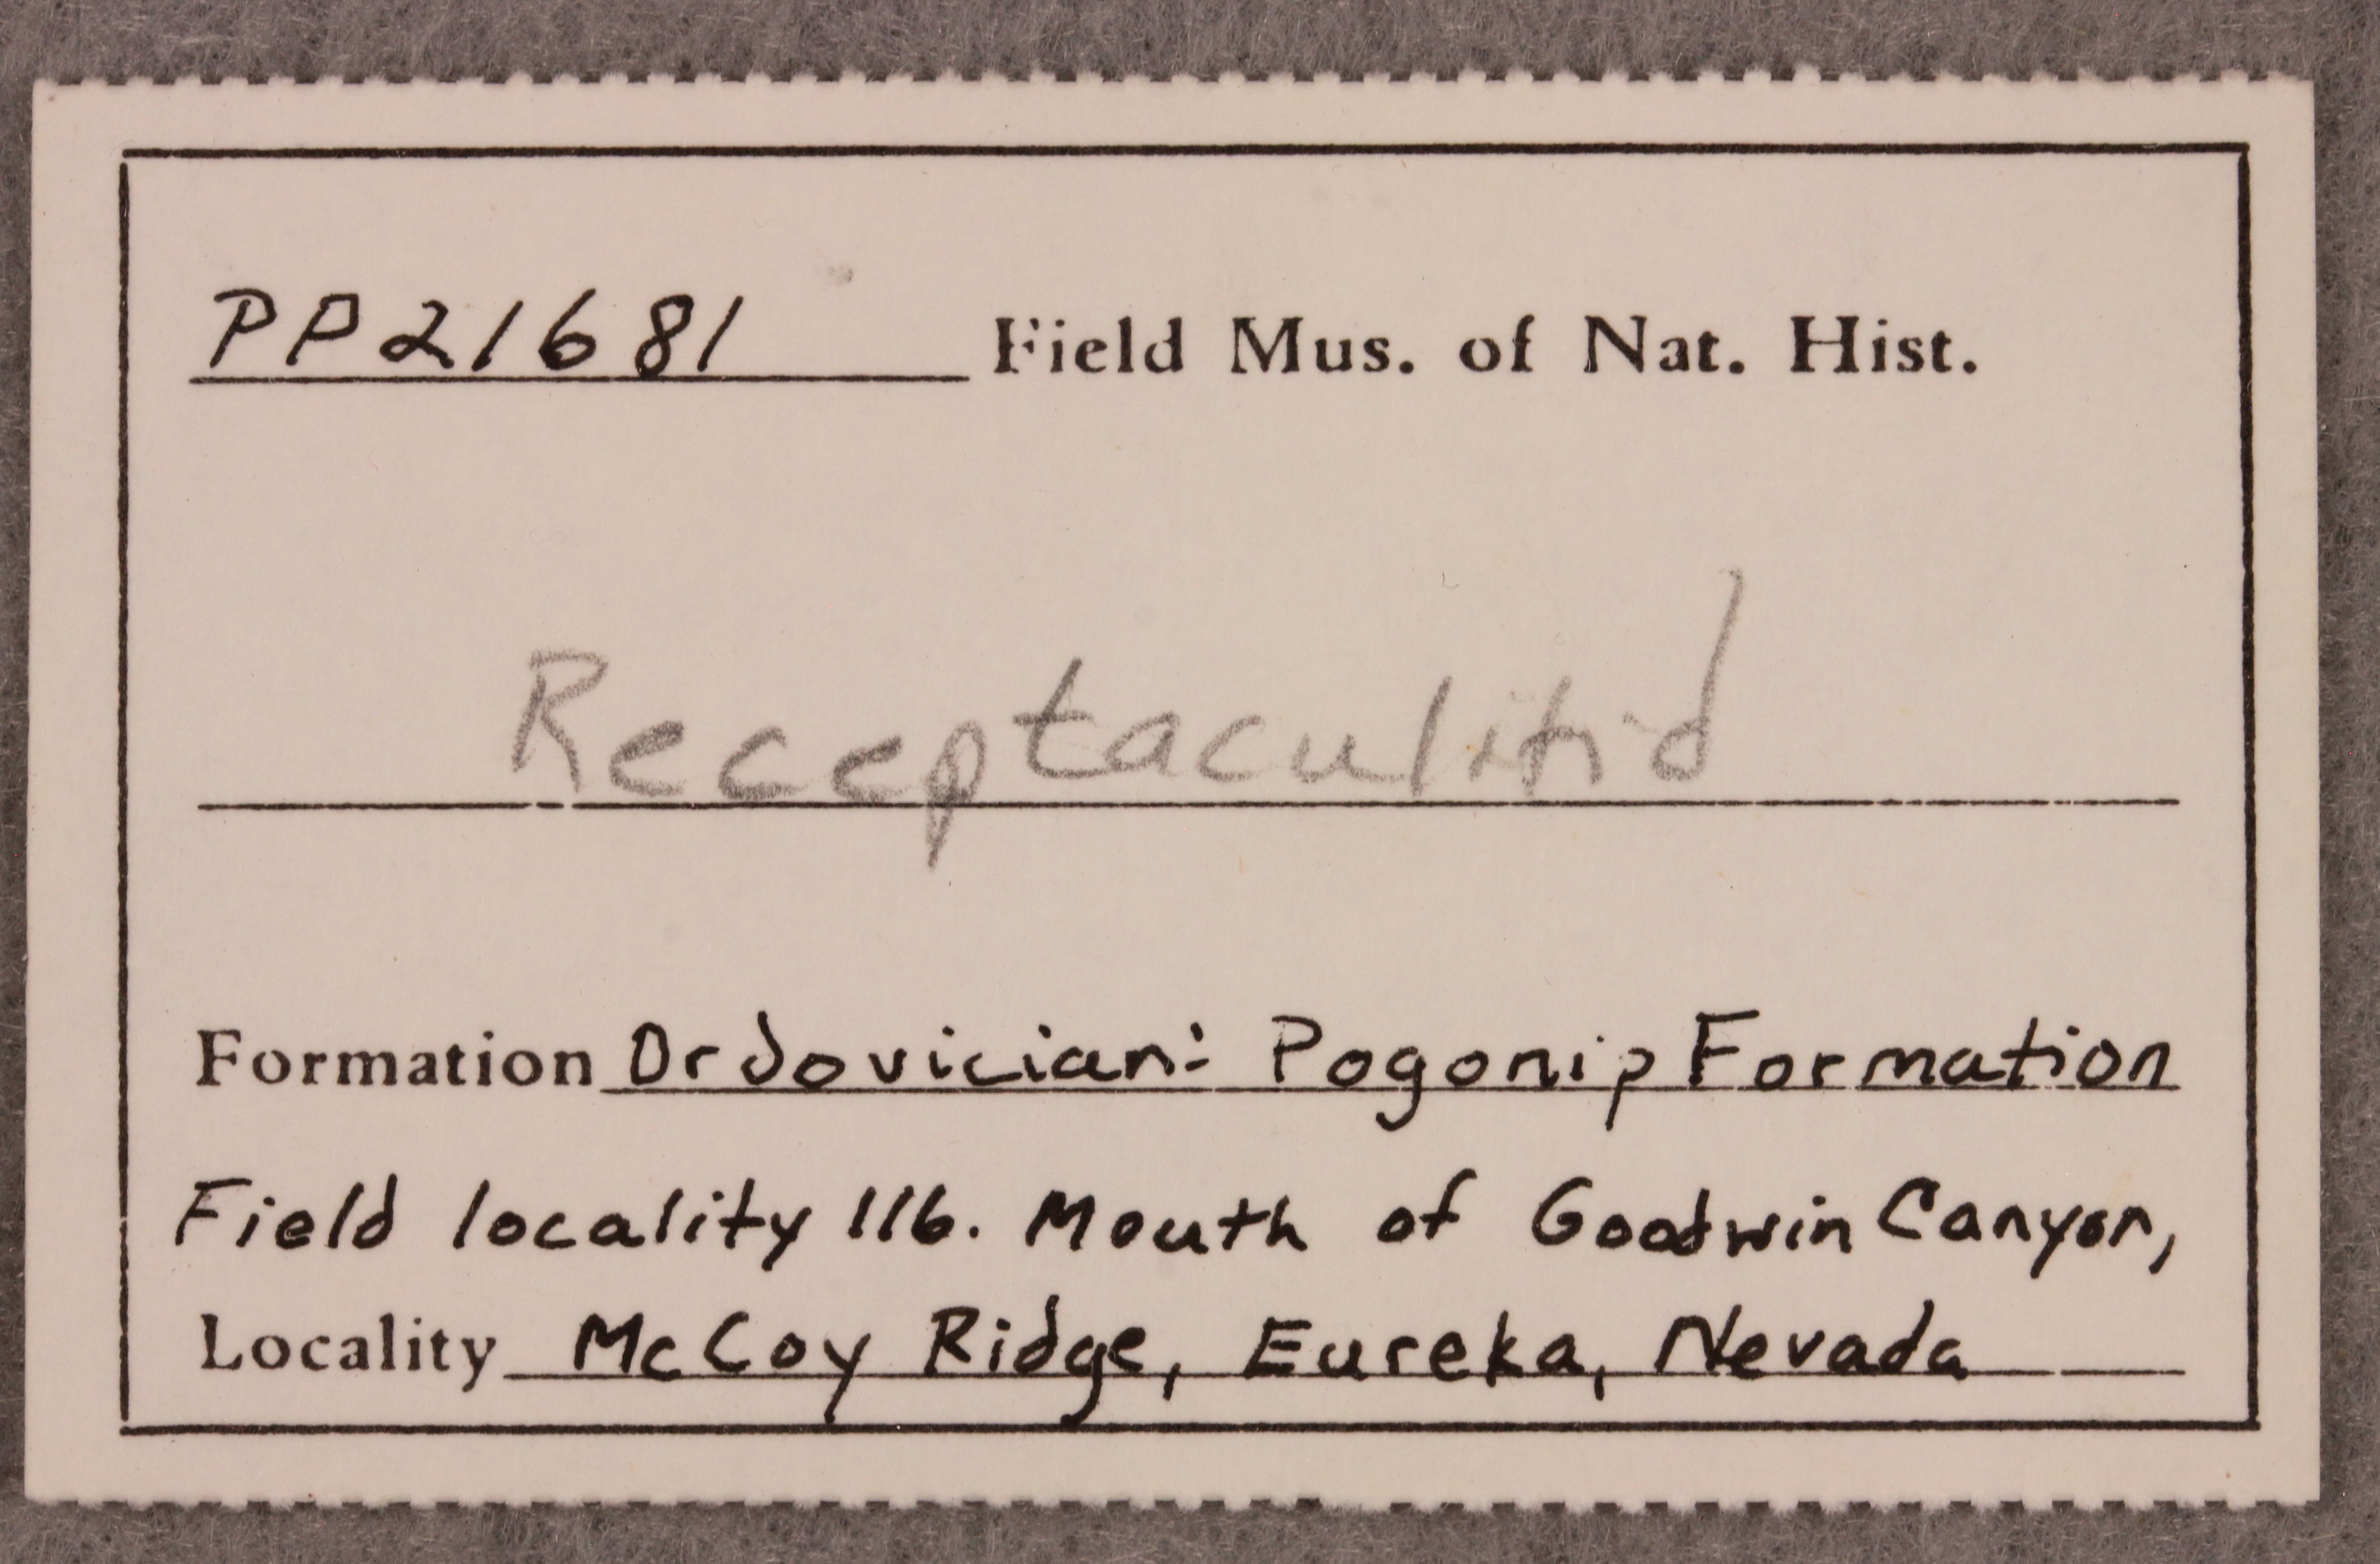 PP21681 Field Mus. of Nat. Hist.
Receptaculitid
Formation Ordovician: Pogonip Formation
Field locality 116. Mouth of Goodwin Canyon,
Locality McCoy Ridge, Eureka, Nevada